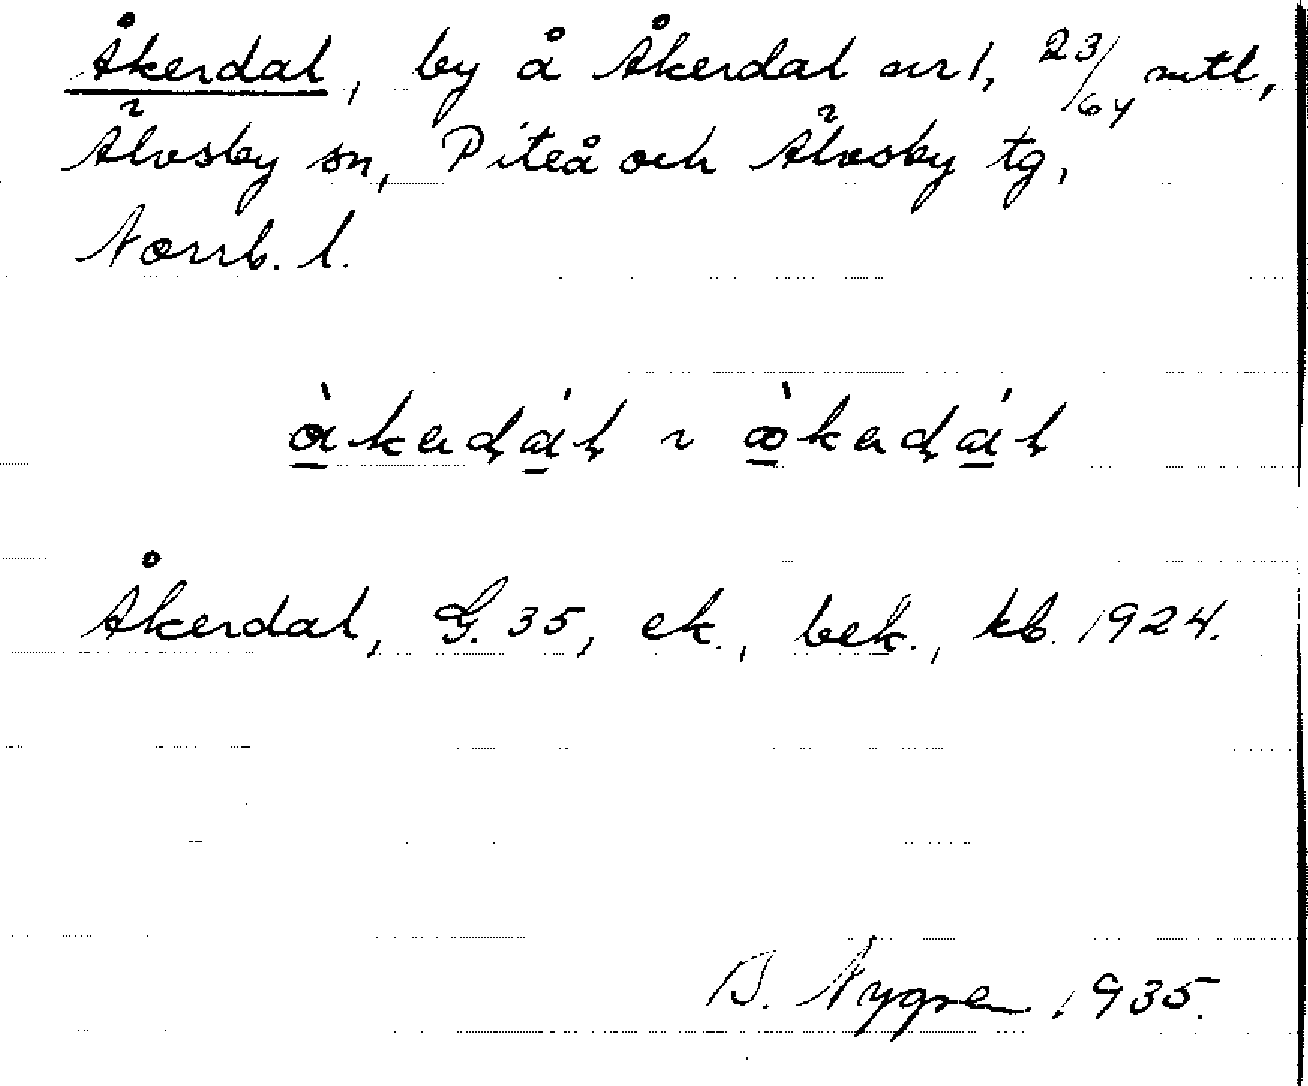 Åkerdal, by å Åkerdal nr 1, 23/64 mtl,
Älvsby sn, Piteå och Älvsby tg,
Norrb. l.
Åkerdal, G. 35, ek., bek., kb. 1924.
B. Nygren 1935.